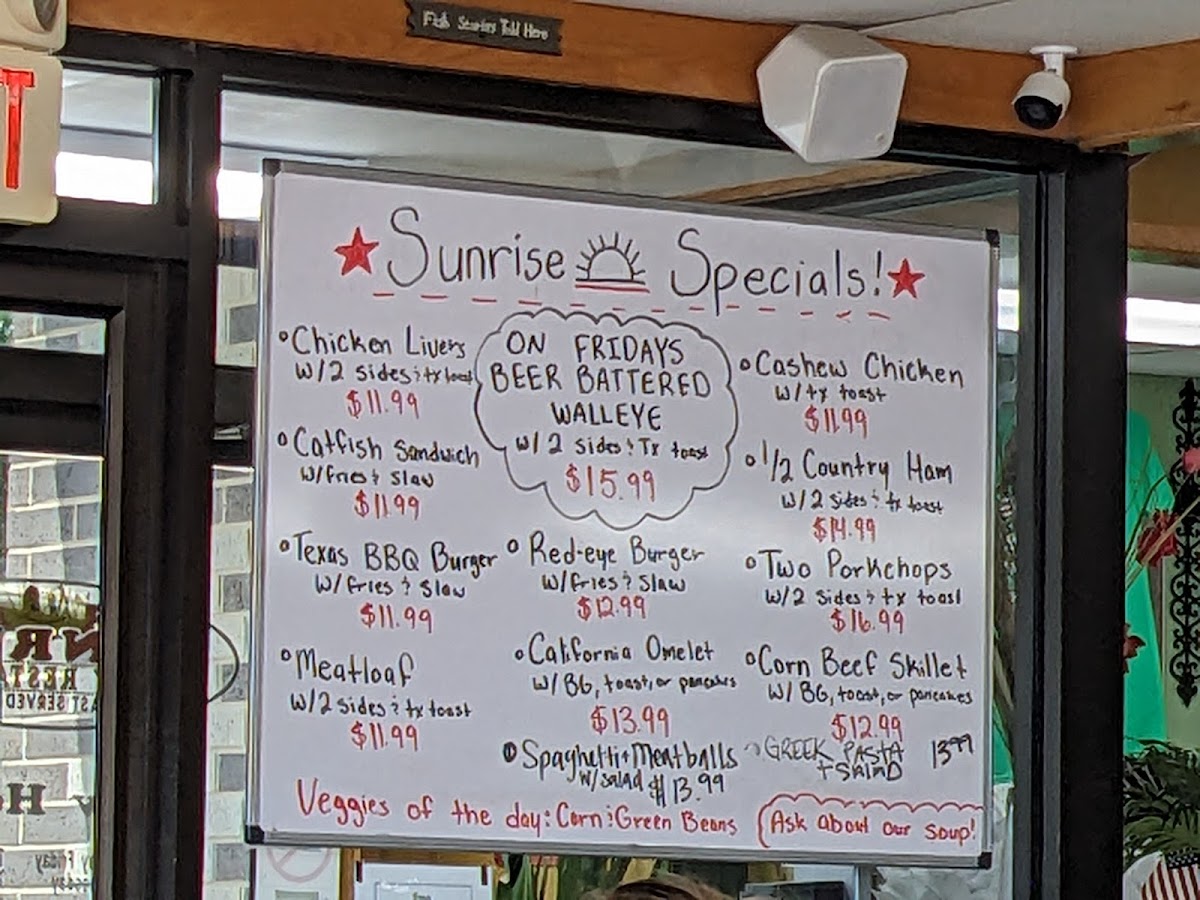 Fish Stories Told Here
T
Sunrise Specials!
Chicken Livers
w/2 sides & tx toast
$11.99
Catfish Sandwich
w/fries & slaw
$11.99
Texas BBQ Burger
w/fries & slaw
$11.99
Meatloaf
w/2 sides & tx toast
$11.99
ON FRIDAYS
BEER BATTERED
WALLEYE
w/ 2 sides & Tx toast
$15.99
Red-eye Burger
w/fries & slaw
$12.99
California Omelet
w/ BG, toast, or pancakes
$13.99
Spaghetti + Meatballs
w/salad $13.99
Cashew Chicken
w/ tx toast
$11.99
1/2 Country Ham
w/2 sides & tx toast
$14.99
Two Porkchops
w/2 sides & tx toast
$16.99
Corn Beef Skillet
w/ BG, toast, or pancakes
$12.99
GREEK PASTA 13.99
+ SALAD
Veggies of the day: Corn & Green Beans
Ask about our soup!